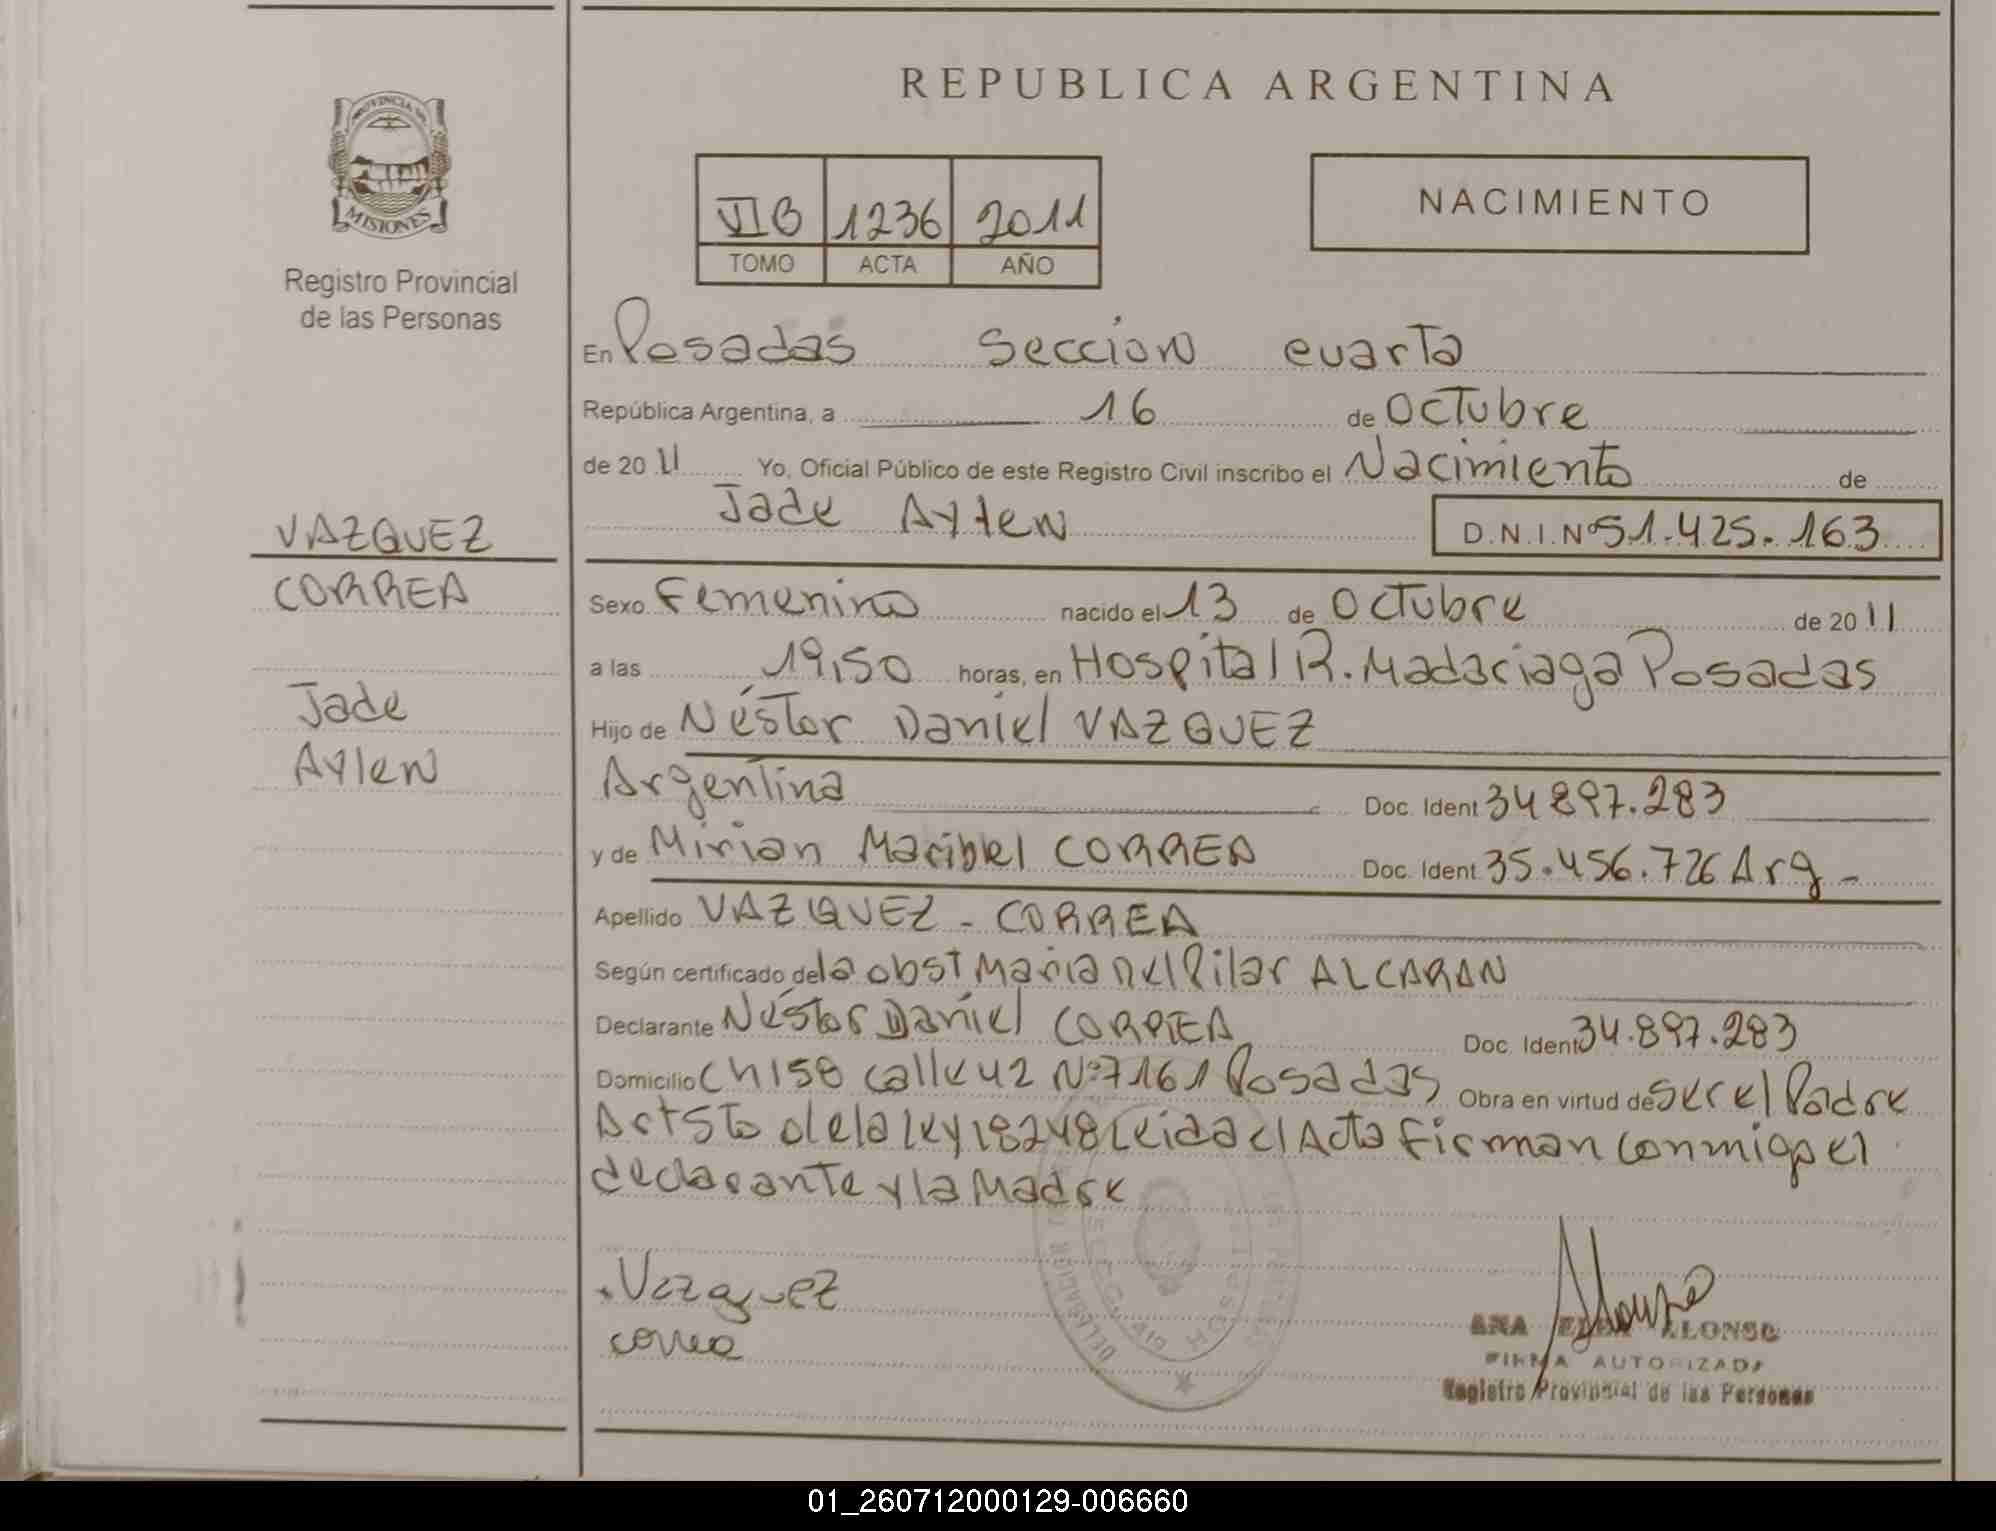 REPUBLICA ARGENTINA
PROVINCIA DE
MISIONES
Registro Provincial
de las Personas
VAZQUEZ
CORREA
Jade
Aylen
VI B 1236 2011
TOMO ACTA AÑO
NACIMIENTO
En Posadas Sección cuarta
República Argentina, a 16 de Octubre
de 20 11 Yo, Oficial Público de este Registro Civil inscribo el Nacimiento de
Jade Aylen D.N.I. Nº 51.425.163
Sexo Femenino nacido el 13 de Octubre de 20 11
a las 19,50 horas, en Hospital R. Madariaga Posadas
Hijo de Néstor Daniel VAZQUEZ
Argentina Doc. Ident 34 897.283
y de Mirian Maribel CORREA Doc. Ident 35.456.726 Arg -
Apellido VAZQUEZ - CORREA
Según certificado de la obst Maria del Pilar ALCARAN
Declarante Néstor Daniel CORREA Doc. Ident 34.897.283
Domicilio Ch 158 calle 42 Nº 7161 Posadas Obra en virtud de ser el Padre
Art 5to de la ley 18248 Leida el Acta firman conmigo el
declarante y la Madre
Vazquez
correa
ANA ALONSO
FIRMA AUTORIZADA
Registro Provincial de las Personas
01_260712000129-006660